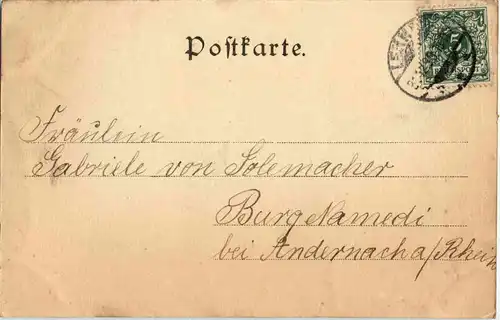 Postkarte.
Fräulein
Gabriele von Solemacher
Burg Namedi
bei Andernach a/Rhein